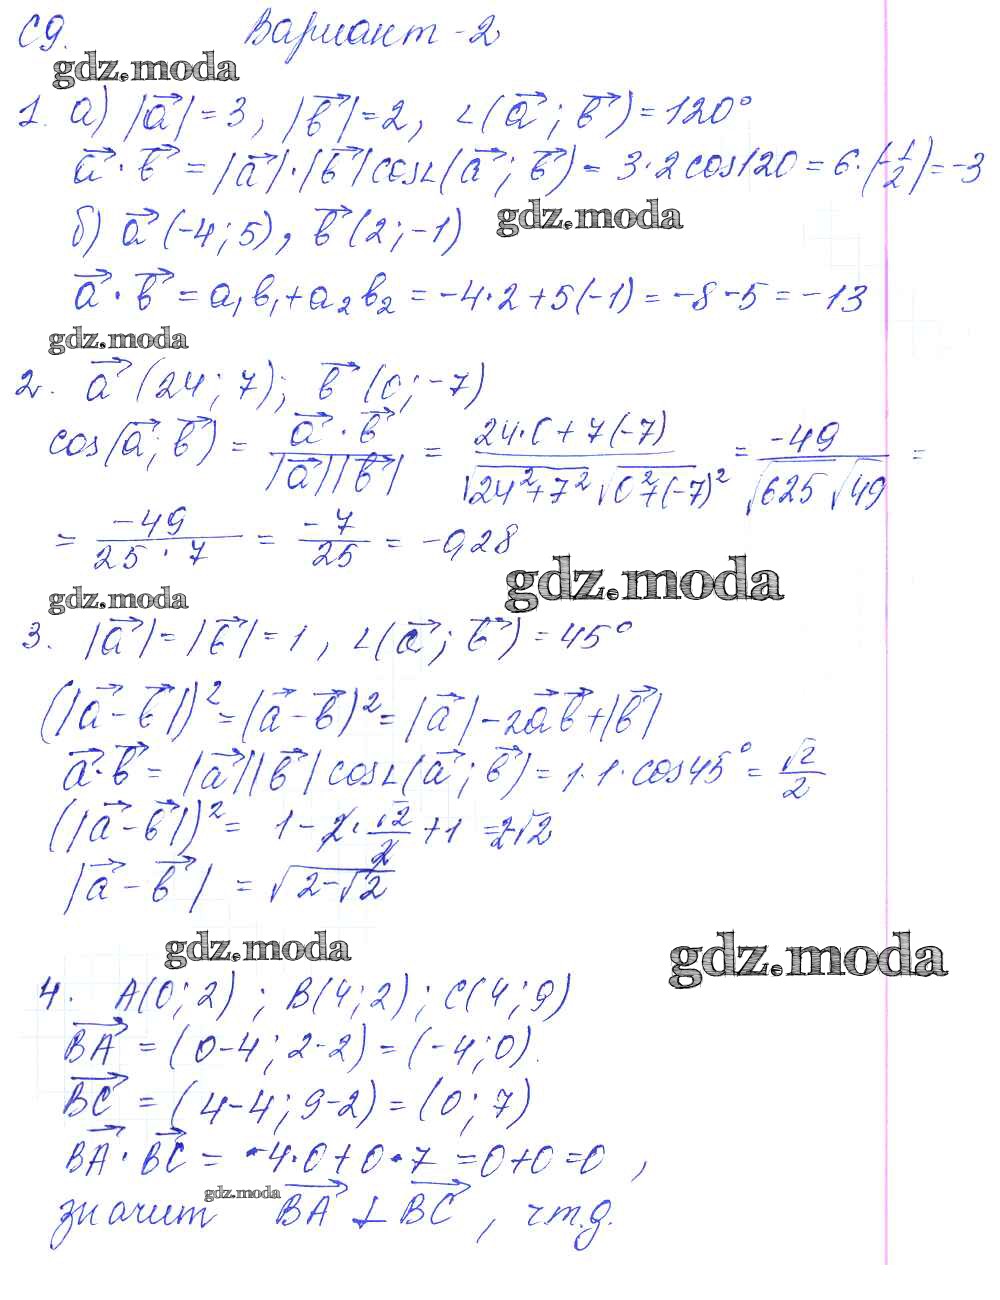 С9. Вариант-2
gdz.moda
1. а) |a⃗|=3, |b⃗|=2, ∠(a⃗; b⃗)=120°
a⃗·b⃗ = |a⃗|·|b⃗|cos∠(a⃗; b⃗) = 3·2cos120 = 6·(-1/2) = -3
gdz.moda
б) a⃗(-4; 5), b⃗(2; -1)
a⃗·b⃗ = a₁b₁+a₂b₂ = -4·2+5(-1) = -8-5 = -13
gdz.moda
2. a⃗(24; 7); b⃗(0; -7)
cos(a⃗; b⃗) = a⃗·b⃗/|a⃗||b⃗| = 24·0+7(-7)/√24²+7² √0²+(-7)² = -49/√625 √49 =
= -49/25·7 = -7/25 = -0,28
gdz.moda
gdz.moda
3. |a⃗|=|b⃗|=1, ∠(a⃗; b⃗)=45°
(|a⃗-b⃗|)² = (a⃗-b⃗)² = |a⃗|-2a⃗b⃗+|b⃗|
a⃗·b⃗ = |a⃗||b⃗|cos∠(a⃗; b⃗) = 1·1·cos45° = √2/2
(|a⃗-b⃗|)² = 1-2·√2/2+1 = 2-√2
|a⃗-b⃗| = √2-√2
gdz.moda
gdz.moda
4. A(0; 2); B(4; 2); C(4; 9)
BA⃗ = (0-4; 2-2) = (-4; 0).
BC⃗ = (4-4; 9-2) = (0; 7)
BA⃗·BC⃗ = -4·0+0·7 = 0+0 = 0,
gdz.moda
значит BA⃗ ⊥ BC⃗, ч.т.д.